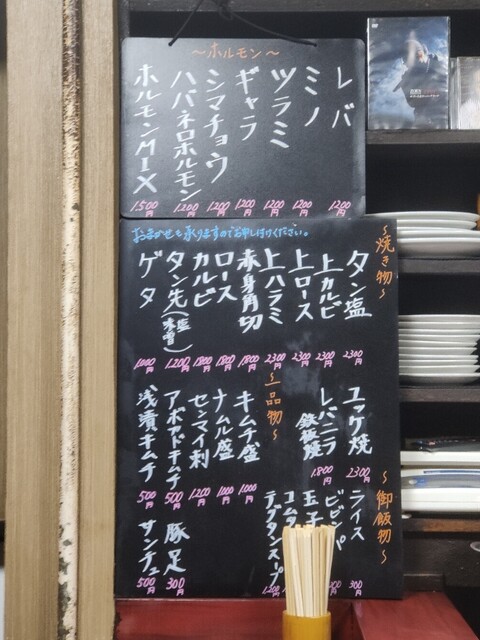 〜ホルモン〜
レバ 1200円
ミノ 1200円
ツラミ 1200円
ギャラ 1200円
シマチョウ 1200円
ハバネロホルモン 1200円
ホルモンMIX 1500円
おまかせも承りますのでお申し付けください。
〜焼き物〜
タン塩 2300円
上カルビ 2300円
上ロース 2300円
上ハラミ 2300円
赤身角切 1800円
ロース 1800円
カルビ 1800円
タン先(塩 味噌) 1200円
ゲタ 1000円
ユッケ焼 2300円
レバニラ鉄板焼 1800円
〜一品物〜
キムチ盛 1000円
ナムル盛 1000円
センマイ刺 1200円
アボカドキムチ 500円
浅漬キムチ 500円
豚足 300円
サンチュ 500円
〜御飯物〜
ライス 300円
ビビンバ
玉子
コムタ
テグタンスープ